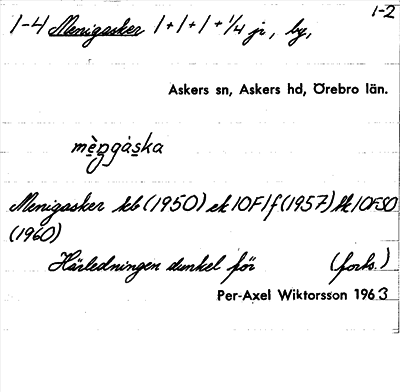 1-2
1-4 Menigasker 1+1+1+1/4 jr, by,
Askers sn, Askers hd, Örebro län.
mèŋgàska
Menigasker kb (1950) ek 10F1f (1957) tk 10FSO
(1960)
Härledningen dunkel för (forts.)
Per-Axel Wiktorsson 1963